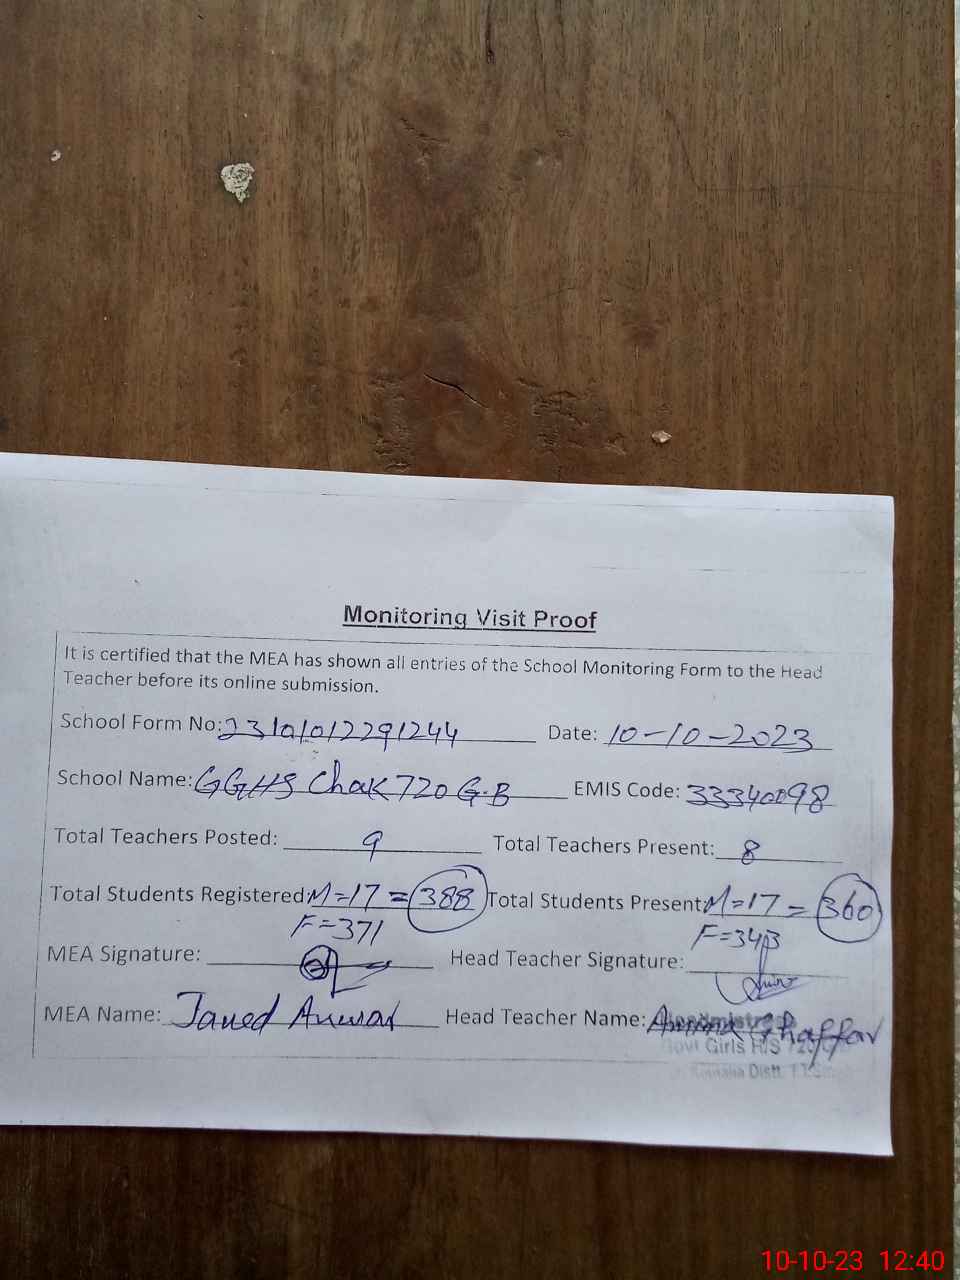 Monitoring Visit Proof
It is certified that the MEA has shown all entries of the School Monitoring Form to the Head
Teacher before its online submission.
School Form No: 23101012291244 Date: 10-10-2023
School Name: GGHS Chak 720 G.B EMIS Code: 33340098
Total Teachers Posted: 9 Total Teachers Present: 8
Total Students Registered M=17 = 388 Total Students Present M=17 = 360
F=371 F=343
MEA Signature: Head Teacher Signature:
MEA Name: Javed Anwar Head Teacher Name: Ghaffar
Headmistress
Govt Girls H/S 720
Distt. T.T.Singh
10-10-23 12:40